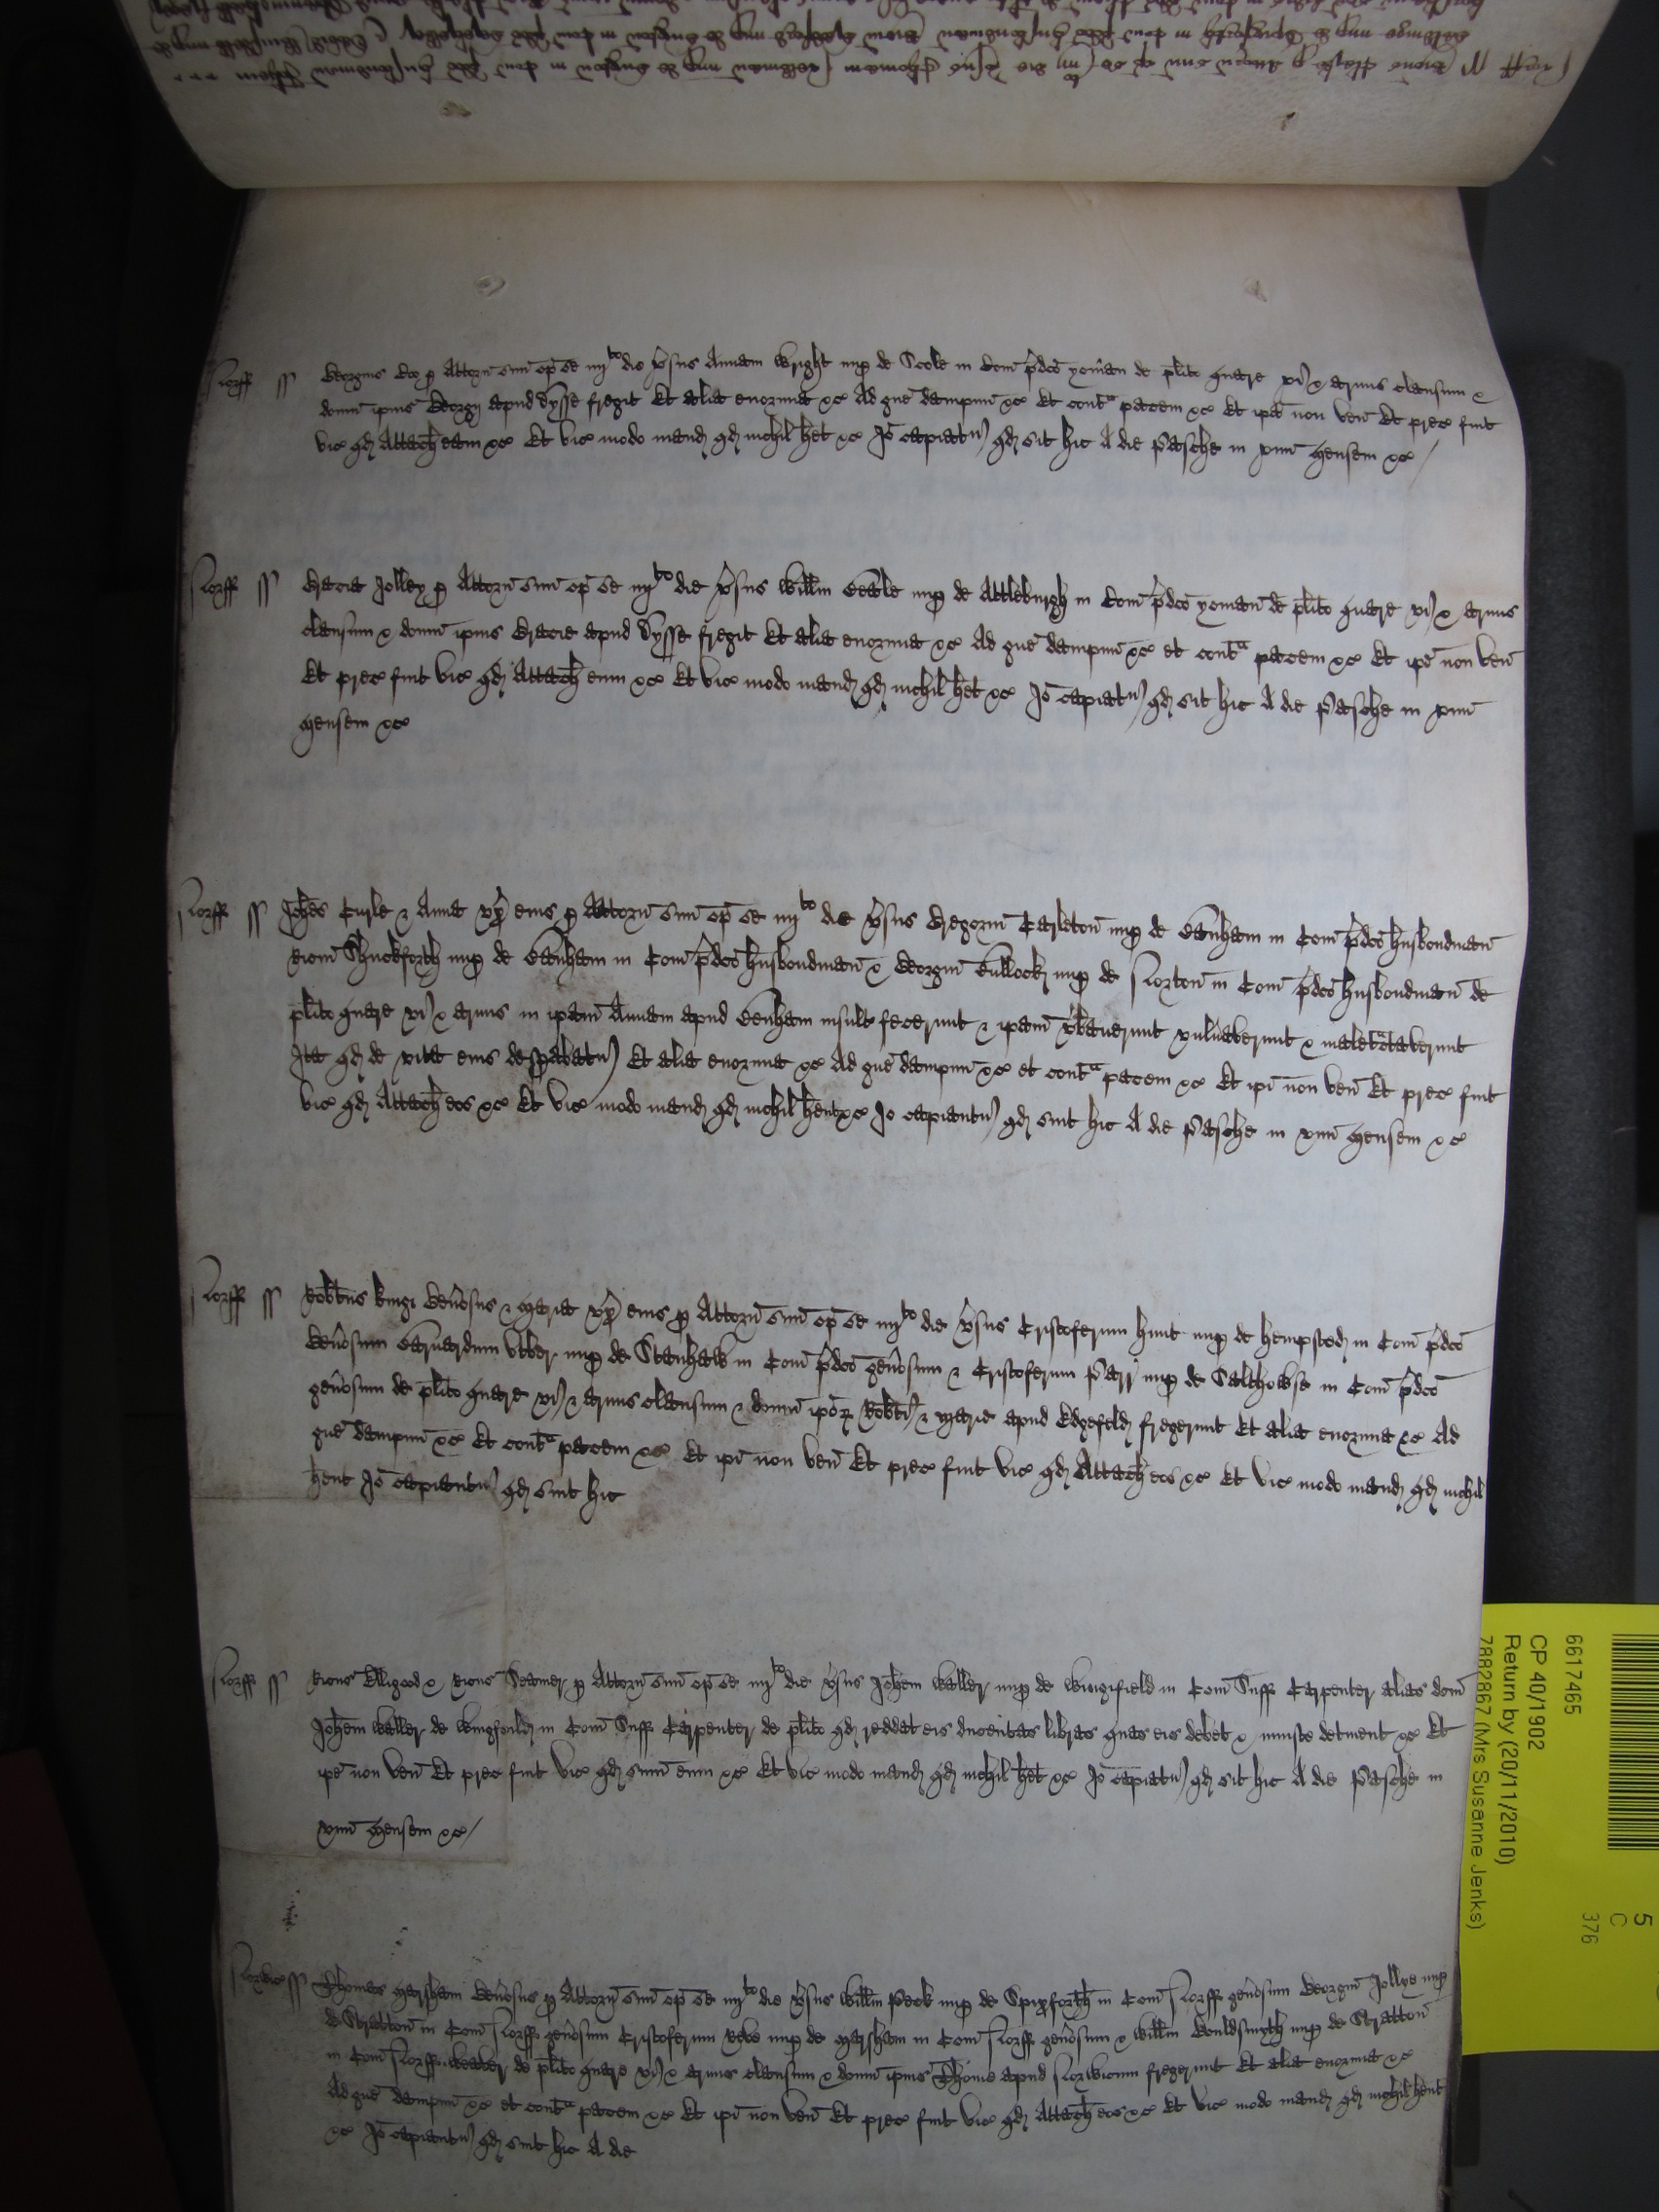 Norff ss Georgius Coo p Attorn suu op se iiij to die vsus Annam Wright nup de Scole in Com pdco yoman de plito quare vi & armis clausum &
domu ipius Georgij apud Dysse fregit Et alia enormia &c Ad gue dampnu &c Et cont a pacem &c Et ipa non ven Et prec fuit
vic qd Attach eam &c Et vic modo mand qd nichil het &c Io capiat qd sit hic A die Pasche in vnu Mensem &c
Norff ss Gracia Jolley p Attorn suu op se iiij to die vsus Willm nup de Attleburgh in Com pdco yoman de plito quare vi & armis
clausum & domu ipius Gracie apud Dysse fregit Et alia enormia &c Ad gue dampnu &c et cont a pacem &c Et ipe non ven
Et prec fuit vic qd Attach eum &c Et vic modo mand qd nichil het &c Io capiat qd sit hic A die Pasche in vnu
Mensem &c
Norff ss Johes Curle & Anna vx eius p Attorn suu op se iiij to die vsus Gregoriu Carleton nup de Banham in Com pdco husbondman
Ricm Shuckforth nup de Banham in Com pdco husbondman & Georgiu Bullock nup de Norton in Com pdco husbondman de
plito quare vi & armis in ipam Annam apud Benham insult fecerunt & ipam vbauerunt vulnauerunt & maletctauerunt
Ita qd de vita eius despabat Et alia enormia &c Ad gue dampnu &c et cont a pacem &c Et ipi non ven Et prec fuit
vic qd Attach eos &c Et vic modo mand qd nichil hent &c Io capiant qd sint hic A die Pasche in vnu Mensem &c
Norff ss Robtus Kinge Genosus & Maria vx eius p Attorn suu op se iiij to die vsus Cristoferum Hunt nup de Hempsted in Com pdco
Genosum nup de Stanhaw in Com pdco genosum & Cristoferum Parr nup de Salthowse in Com pdco
genosum de plito quare vi & armis clausum & domu ipor Robti & Marie apud Edgefeld fregerunt Et alia enormia &c Ad
gue dampnu &c Et cont a pacem &c Et ipi non ven Et prec fuit vic qd Attach eos &c Et vic modo mand qd nichil
hent Io capiant qd sint hic
Norff ss Ricus Elligood & Ricus Seamer p Attorn suu op se iiij to die vsus Johem Waller nup de Wingifield in Com Suff Carpenter alias dcm
Johem Waller de Wingfeild in Com Suff Carpenter de plito qd reddat eis ducentas libras quas eis debet & iniuste detinent &c Et
ipe non ven Et prec fuit vic qd sum eum &c Et vic modo mand qd nichil het &c Io capiat qd sit hic A die Pasche in
vnu Mensem &c
Norwic ss Thomas Marsham Genosus p Attorn suu op se iiij to die vsus Willm Peck nup de Spixforth in Com Norff genosum Georgiu Jollye nup
de Stratton in Com Norff genosum Cristoferum nup de Marsham in Com Norff genosum & Willm Gouldsmyth nup de Stratton
in Com Norff Weaver de plito quare vi & armis clausum & domu ipius Thome apud Norwicum fregerunt Et alia enormia &c
Ad gue dampnu &c et cont a pacem &c Et ipi non ven Et prec fuit vic qd Attach eos &c Et vic modo mand qd nichil hent
&c Io capiant qd sint hic A die
6617465
CP 40/1902
Return by (20/11/2010)
7882867 (Mrs Susanne Jenks)
5
C
376